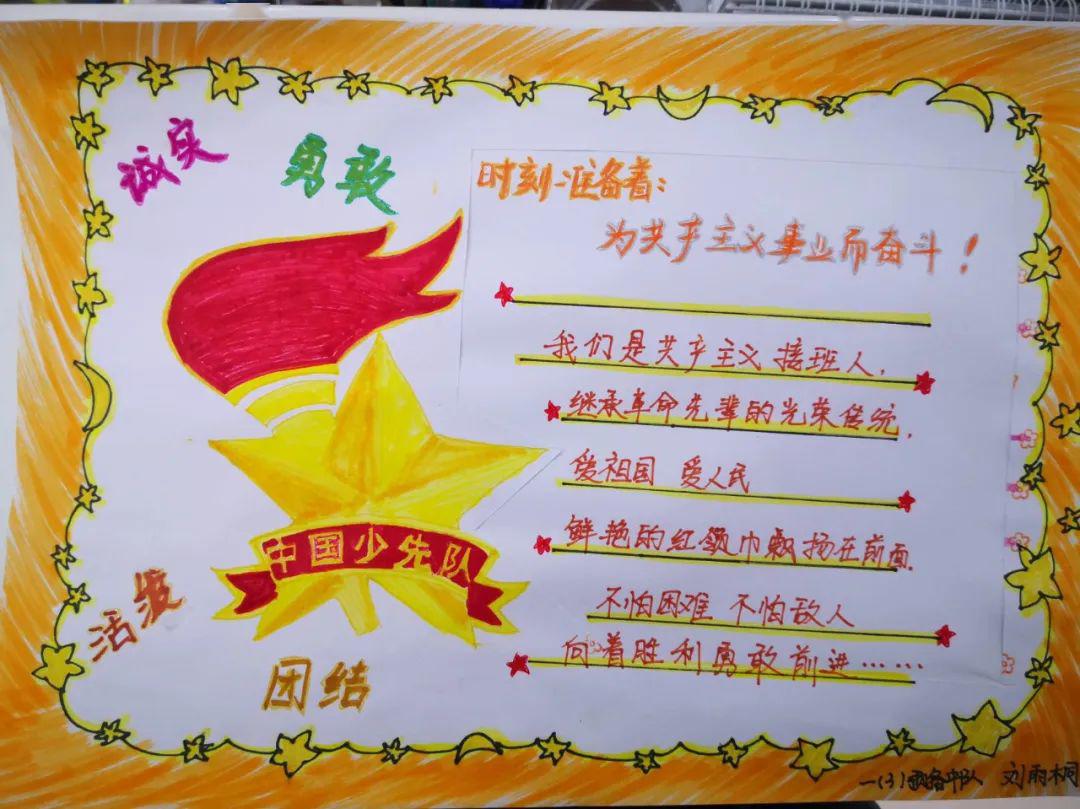 诚实
勇敢
时刻准备着:
为共产主义事业而奋斗!
我们是共产主义接班人,
继承革命先辈的光荣传统,
爱祖国 爱人民
鲜艳的红领巾飘扬在前面.
不怕困难 不怕敌人
向着胜利勇敢前进……
中国少先队
活泼
团结
一(3)预备中队 刘雨桐